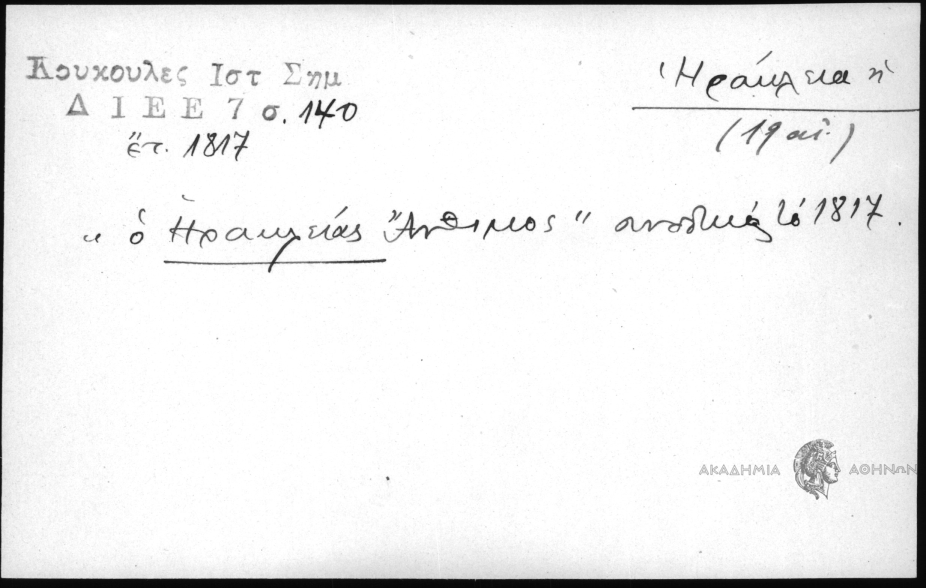 Κουκουλες Ιστ Σημ
Δ Ι Ε Ε 7 σ. 140
ἔτ. 1817
Ἡράκλεια ἡ
(19 αἰ.)
"ὁ Ἡρακλείας Ἄνθιμος" συνοδικός τό 1817.
ΑΚΑΔΗΜΙΑ ΑΘΗΝΩΝ